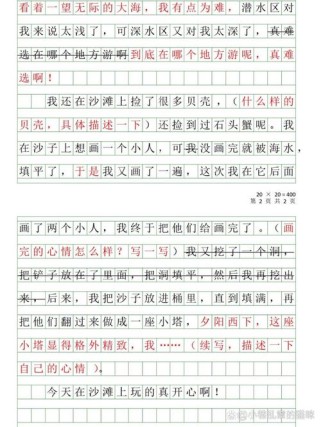 看着一望无际的大海，我有点为难，潜水区对
我来说太浅了，可深水区又对我太深了，真难
选在哪个地方游啊到底在哪个地方游呢，真难
选啊！
我还在沙滩上捡了很多贝壳，（什么样的
贝壳，具体描述一下）还捡到过石头蟹呢。我
在沙子上想画一个小人，可我没画完就被海水，
填平了，于是我又画了一遍，这次我在它后面
20 × 20 = 400
第 2 页 共 2 页
画了两个小人，我终于把他们给画完了。（画
完的心情怎么样？写一写）我又挖了一个洞，
把铲子放在了里面，把洞填平，然后我再挖出
来，后来，我把沙子放进桶里，直到填满，再
把他们翻过来做成一座小塔，夕阳西下，这座
小塔显得格外精致，我……（续写，描述一下
自己的心情）。
今天在沙滩上玩的真开心啊！